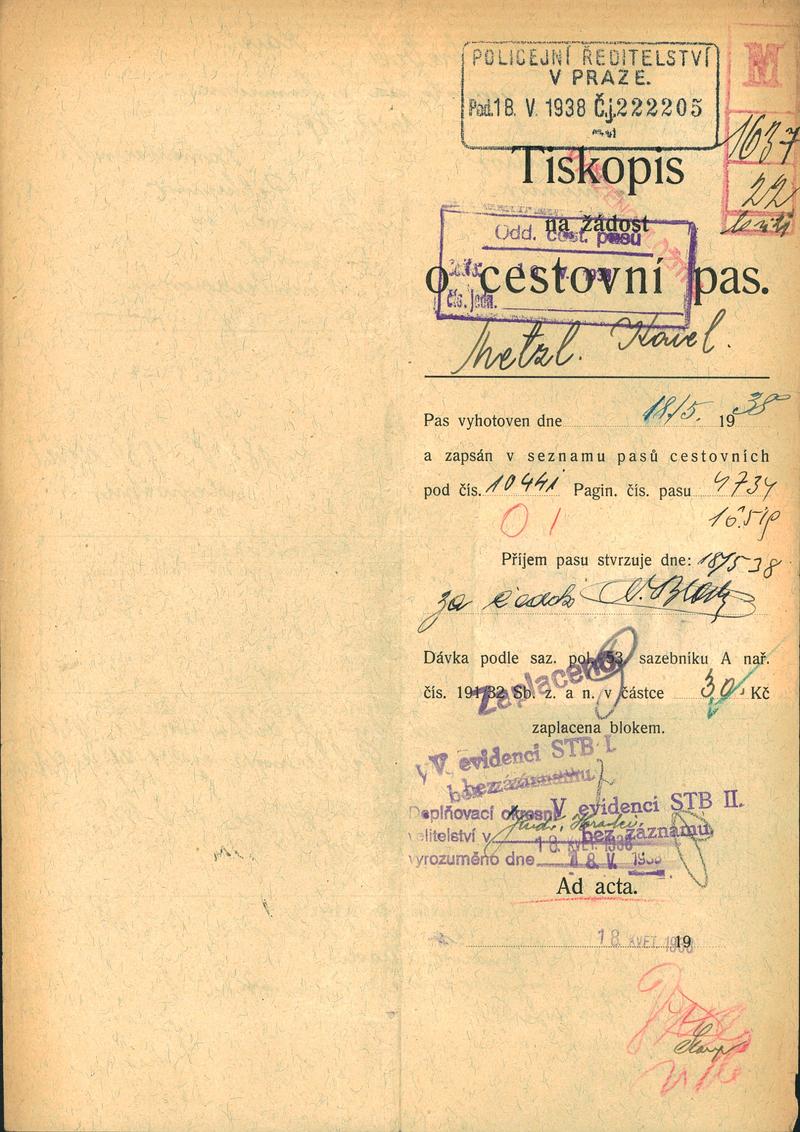 POLICEJNÍ ŘEDITELSTVÍ
V PRAZE.
Pod. 18. V. 1938 Čj. 222205
M
1637
22
Tiskopis
na žádost
Odd. cest. pasů
o cestovní pas.
čís. jedn.
Metzl. Karel.
Pas vyhotoven dne 18/5. 1938
a zapsán v seznamu pasů cestovních
pod čís. 10441 Pagin. čís. pasu 4734
01
Příjem pasu stvrzuje dne: 18/5 38
za
Dávka podle saz. pol. 53. sazebníku A nař.
Zaplaceno
čís. 191/32 Sb. z. a n. v částce 30 Kč
zaplacena blokem.
V evidenci STB I.
bez záznamu
Doplňovací okresní
V evidenci STB II.
velitelství v
bez záznamu
18. KVĚT. 1938
vyrozuměno dne 18. V. 1938
Ad acta.
18 KVĚT. 1938 19